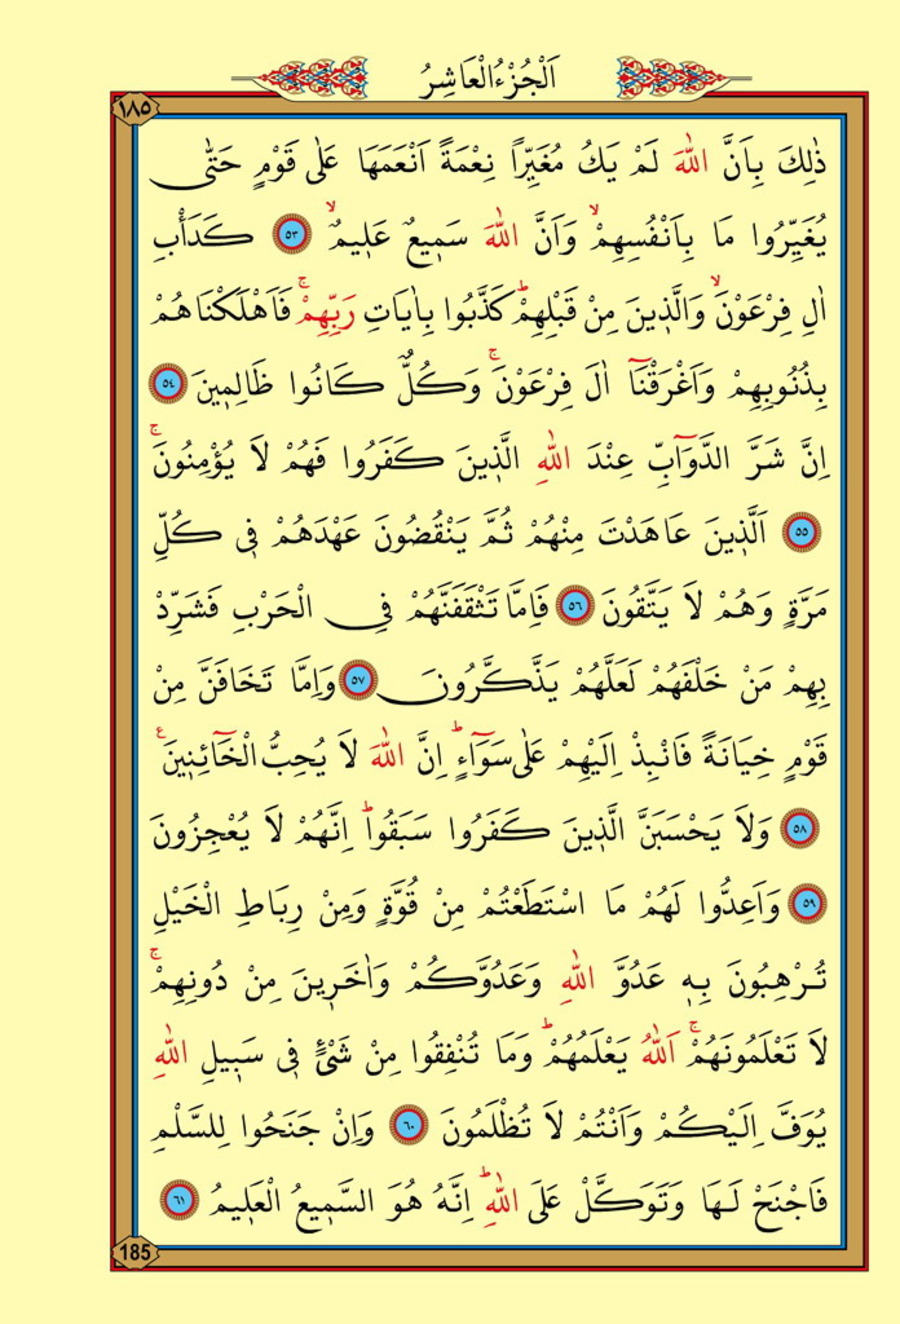 اَلْجُزْءُ الْعَاشِرُ
١٨٥
ذٰلِكَ بِاَنَّ اللّٰهَ لَمْ يَكُ مُغَيِّرًا نِعْمَةً اَنْعَمَهَا عَلٰى قَوْمٍ حَتّٰى
يُغَيِّرُوا مَا بِاَنْفُسِهِمْۙ وَاَنَّ اللّٰهَ سَمٖيعٌ عَلٖيمٌۙ ﴿٥٣﴾ كَدَأْبِ
اٰلِ فِرْعَوْنَۙ وَالَّذٖينَ مِنْ قَبْلِهِمْؕ كَذَّبُوا بِاٰيَاتِ رَبِّهِمْۚ فَاَهْلَكْنَاهُمْ
بِذُنُوبِهِمْ وَاَغْرَقْنَٓا اٰلَ فِرْعَوْنَۚ وَكُلٌّ كَانُوا ظَالِمٖينَ ﴿٥٤﴾
اِنَّ شَرَّ الدَّوَٓابِّ عِنْدَ اللّٰهِ الَّذٖينَ كَفَرُوا فَهُمْ لَا يُؤْمِنُونَۚ
﴿٥٥﴾ اَلَّذٖينَ عَاهَدْتَ مِنْهُمْ ثُمَّ يَنْقُضُونَ عَهْدَهُمْ فٖى كُلِّ
مَرَّةٍ وَهُمْ لَا يَتَّقُونَ ﴿٥٦﴾ فَاِمَّا تَثْقَفَنَّهُمْ فِى الْحَرْبِ فَشَرِّدْ
بِهِمْ مَنْ خَلْفَهُمْ لَعَلَّهُمْ يَذَّكَّرُونَ ﴿٥٧﴾ وَاِمَّا تَخَافَنَّ مِنْ
قَوْمٍ خِيَانَةً فَانْبِذْ اِلَيْهِمْ عَلٰى سَوَٓاءٍؕ اِنَّ اللّٰهَ لَا يُحِبُّ الْخَٓائِنٖينَ ع
﴿٥٨﴾ وَلَا يَحْسَبَنَّ الَّذٖينَ كَفَرُوا سَبَقُواؕ اِنَّهُمْ لَا يُعْجِزُونَ
﴿٥٩﴾ وَاَعِدُّوا لَهُمْ مَا اسْتَطَعْتُمْ مِنْ قُوَّةٍ وَمِنْ رِبَاطِ الْخَيْلِ
تُرْهِبُونَ بِهٖ عَدُوَّ اللّٰهِ وَعَدُوَّكُمْ وَاٰخَرٖينَ مِنْ دُونِهِمْۚ
لَا تَعْلَمُونَهُمْۚ اَللّٰهُ يَعْلَمُهُمْؕ وَمَا تُنْفِقُوا مِنْ شَیْءٍ فٖى سَبٖيلِ اللّٰهِ
يُوَفَّ اِلَيْكُمْ وَاَنْتُمْ لَا تُظْلَمُونَ ﴿٦٠﴾ وَاِنْ جَنَحُوا لِلسَّلْمِ
فَاجْنَحْ لَهَا وَتَوَكَّلْ عَلَى اللّٰهِؕ اِنَّهُ هُوَ السَّمٖيعُ الْعَلٖيمُ ﴿٦١﴾
185